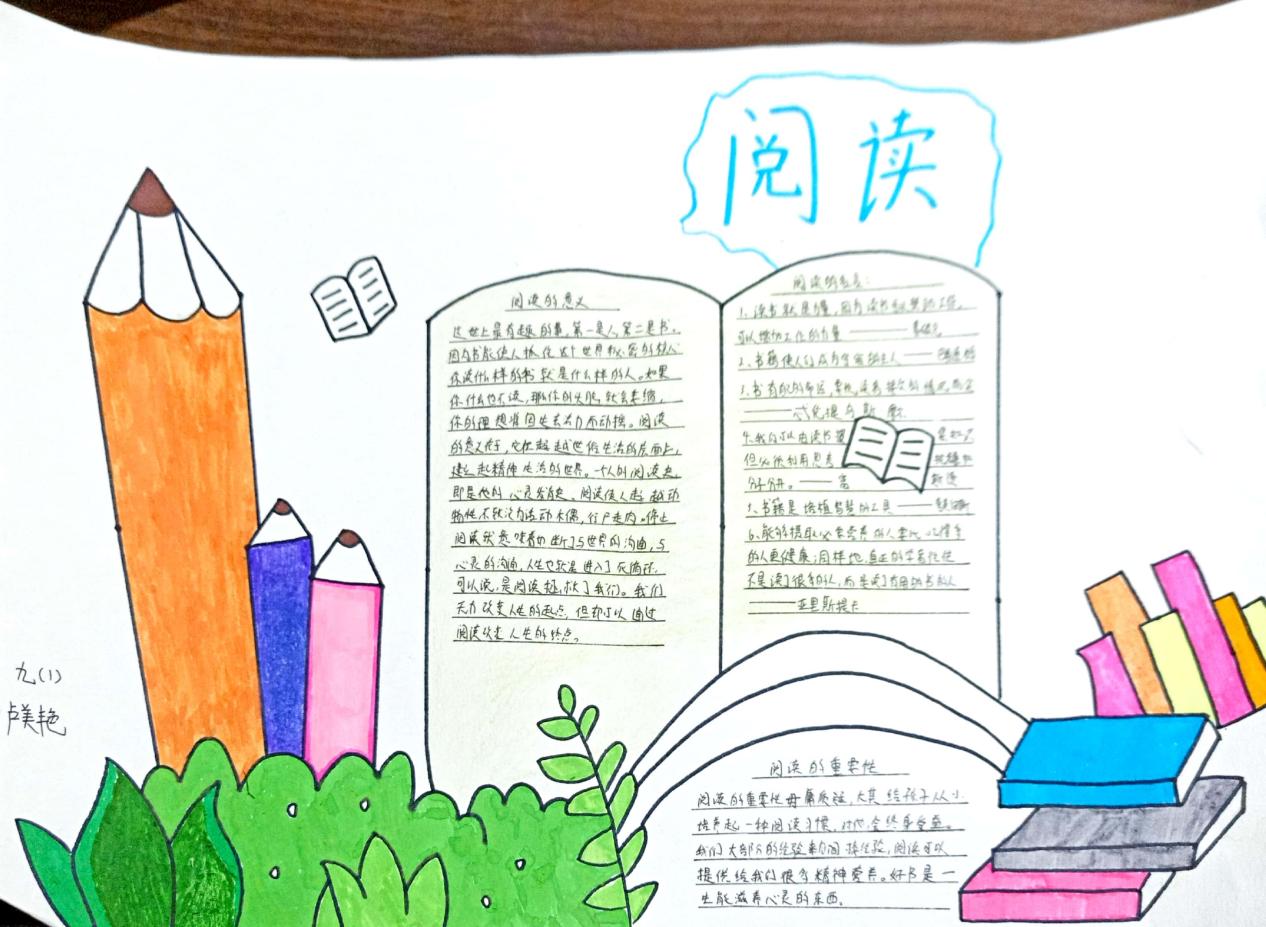 阅读
阅读的意义
这世上最有趣的事,第一是人,第二是书。
因为书能使人抓住这个世界秘密的核心
你读什么样的书就是什么样的人。如果
你什么也不读,那么你的头脑就会萎缩,
你的理想将因失去活力而动摇。阅读
的意义在于,它在超越世俗生活的层面上,
建立起精神生活的世界。一个人的阅读史
即是他的心灵发育史。阅读使人超越动
物性,不致沦为活动木偶,行尸走肉。停止
阅读就意味着切断了与世界的沟通,与
心灵的沟通,人生也就进入了死循环。
可以说,是阅读拯救了我们。我们
无力改变人生的起点,但却可以通过
阅读改变人生的终点。
阅读的名言:
1、读书就是力量,因为读书
可以增加工作的力量
2、书籍使人们成为宇宙的主人
3、书有
4、我们可以由读书
但必须利用思考
分子分开。
5、书籍是培植智慧的工具
6、能够摄取必要营养的人要比吃得多
的人更健康;同样地,真正的学者往往
不是读了很多的人,而是读了有用的书的人
———亚里斯提卡
九(1)
卢美艳
阅读的重要性
阅读的重要性毋庸质疑,尤其给孩子从小
培养起一种阅读习惯,对他会终身受益。
我们大部分的经验来自间接经验,阅读可以
提供给我们很多精神营养。好书是一
生能滋养心灵的东西。